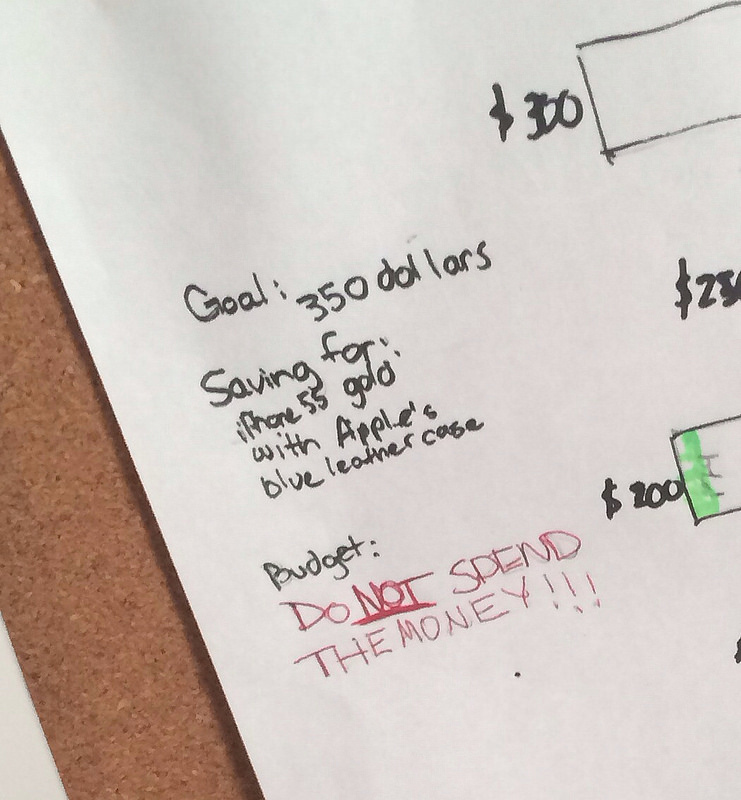 $ 300
Goal: 350 dollars
$25
Saving for:
iPhone 5S gold
with Apple's
blue leather case
$ 200
Budget:
DO NOT SPEND
THE MONEY!!!